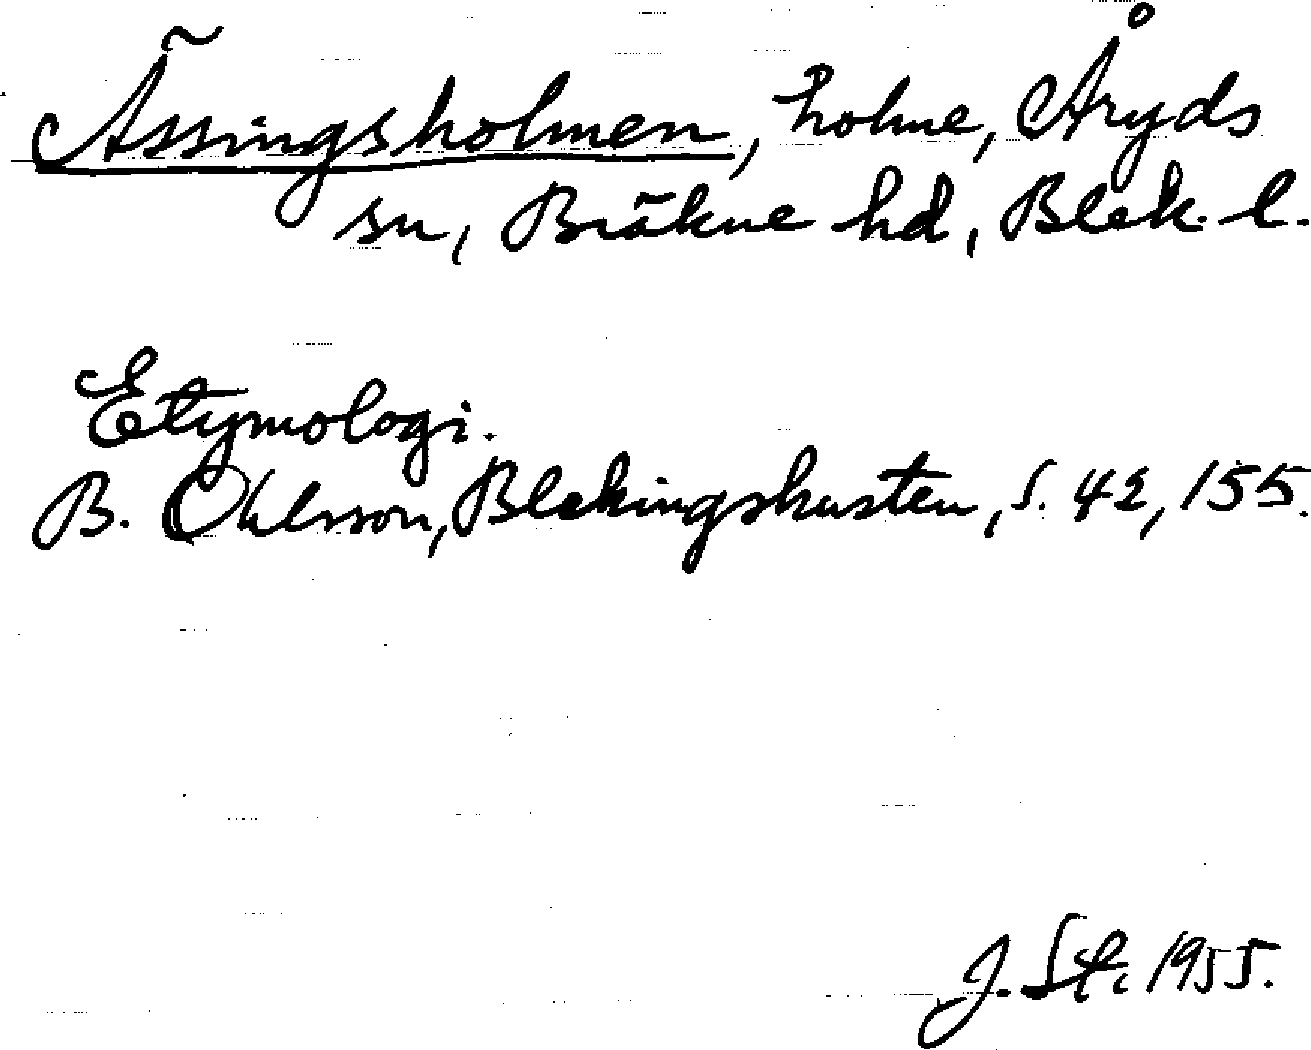 Ässingsholmen, holme, Åryds
sn, Bräkne hd, Blek. l.
Etymologi.
B. Ohlsson, Blekingskusten, s. 42, 155.
J. 1955.